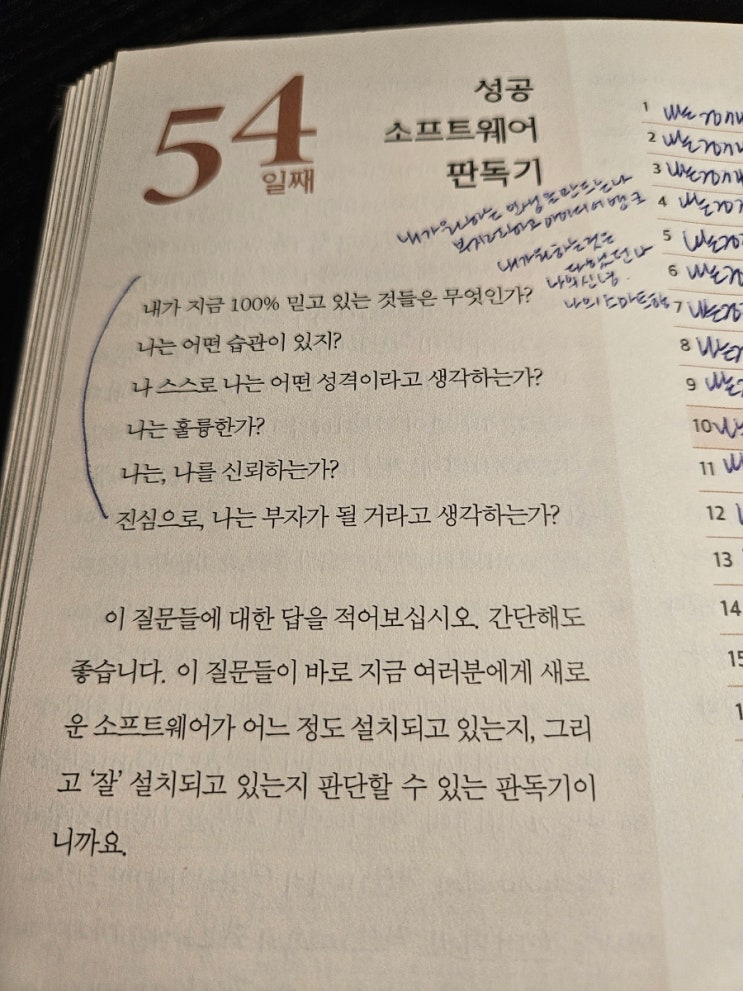 54
일째
성공
소프트웨어
판독기
내가 원하는 인생을 만드는 나
내가 원하는것은
나의 신념.
내가 지금 100% 믿고 있는 것들은 무엇인가?
나는 어떤 습관이 있지?
나 스스로 나는 어떤 성격이라고 생각하는가?
나는 훌륭한가?
나는, 나를 신뢰하는가?
진심으로, 나는 부자가 될 거라고 생각하는가?
이 질문들에 대한 답을 적어보십시오. 간단해도
좋습니다. 이 질문들이 바로 지금 여러분에게 새로
운 소프트웨어가 어느 정도 설치되고 있는지, 그리
고 ‘잘’ 설치되고 있는지 판단할 수 있는 판독기이
니까요.
1
2
3
4
5
6
7
8
9
10
11
12
13
14
15
1